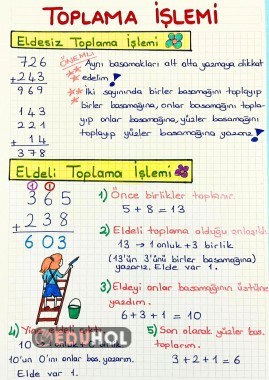 TOPLAMA İŞLEMİ
Eldesiz Toplama İşlemi
ÖNEMLİ
726
+243
969
143
221
+ 14
378
** Aynı basamakları alt alta yazmaya dikkat
edelim!
** İki sayınında birler basamağını toplayıp
birler basamağına, onlar basamağını topla-
yıp onlar basamağına, yüzler basamağını
toplayıp yüzler basamağına yazarız!
Eldeli Toplama İşlemi
1 1
365
+ 238
603
1) Önce birlikler toplanır.
5 + 8 = 13
2) Eldeli toplama olduğu için
13 → 1 onluk + 3 birlik
(13'ün 3'ünü birler basamağına)
yazarız. Elde var 1.
3) Eldeyi onlar basamağının üstüne
yazdım.
6 + 3 + 1 = 10
4) Yine eldeli
10
10'un 0'ını onlar bas. yazarım.
Elde var 1.
5) Son olarak yüzler bas.
toplarım.
3 + 2 + 1 = 6